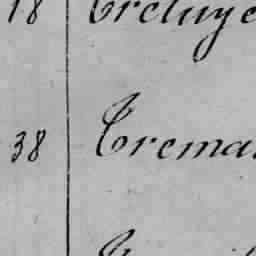 18 Creluye
38 Crema